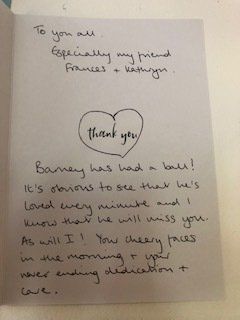 To you all.
Especially my friend
Frances + Kathryn.
thank you
Barney has had a ball!
It's obvious to see that he's
loved every minute and I
know that he will miss you.
As will I! Your cheery faces
in the morning + your
never ending dedication +
care.